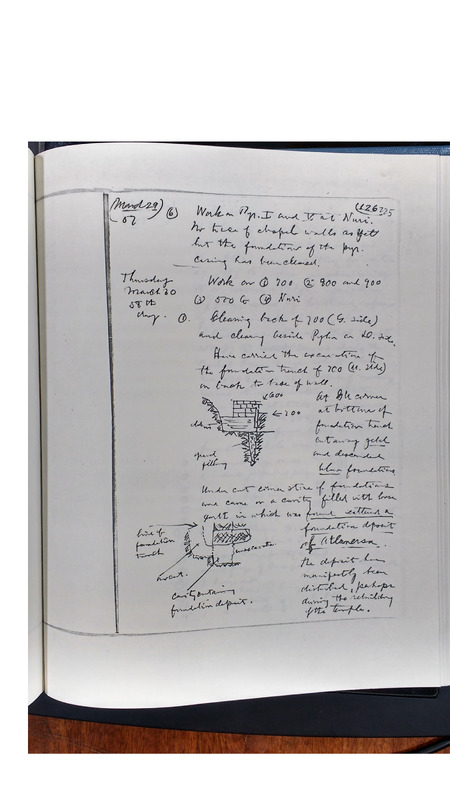 March 29
57
(6) Work on Pyr. I and II at Nuri.
(126 325
No trace of chapel walls as yet
but the foundation of the pyr.
casing has been cleared.
Thursday
March 30
58th
day.
Work on ① 700 ② 800 and 900
③ 500 G ④ Nuri
①. Clearing back of 700 (G. side)
and clearing beside Pylon on side.
Have carried the excavation of
the foundation trench of 700 (side)
on back to base of wall.
700
debris
speed
filling
At corner
at bottom of
foundation trench
cut away
and descended
below foundations
Under cut corner stone of foundations
and came on a cavity filled with
in which was found
foundation deposit
of Atlanersa.
line of
foundation
trench
uncut.
cavity containing
foundation deposit.
The deposit has
manifestly been
disturbed, perhaps
during the rebuilding
of the temple.